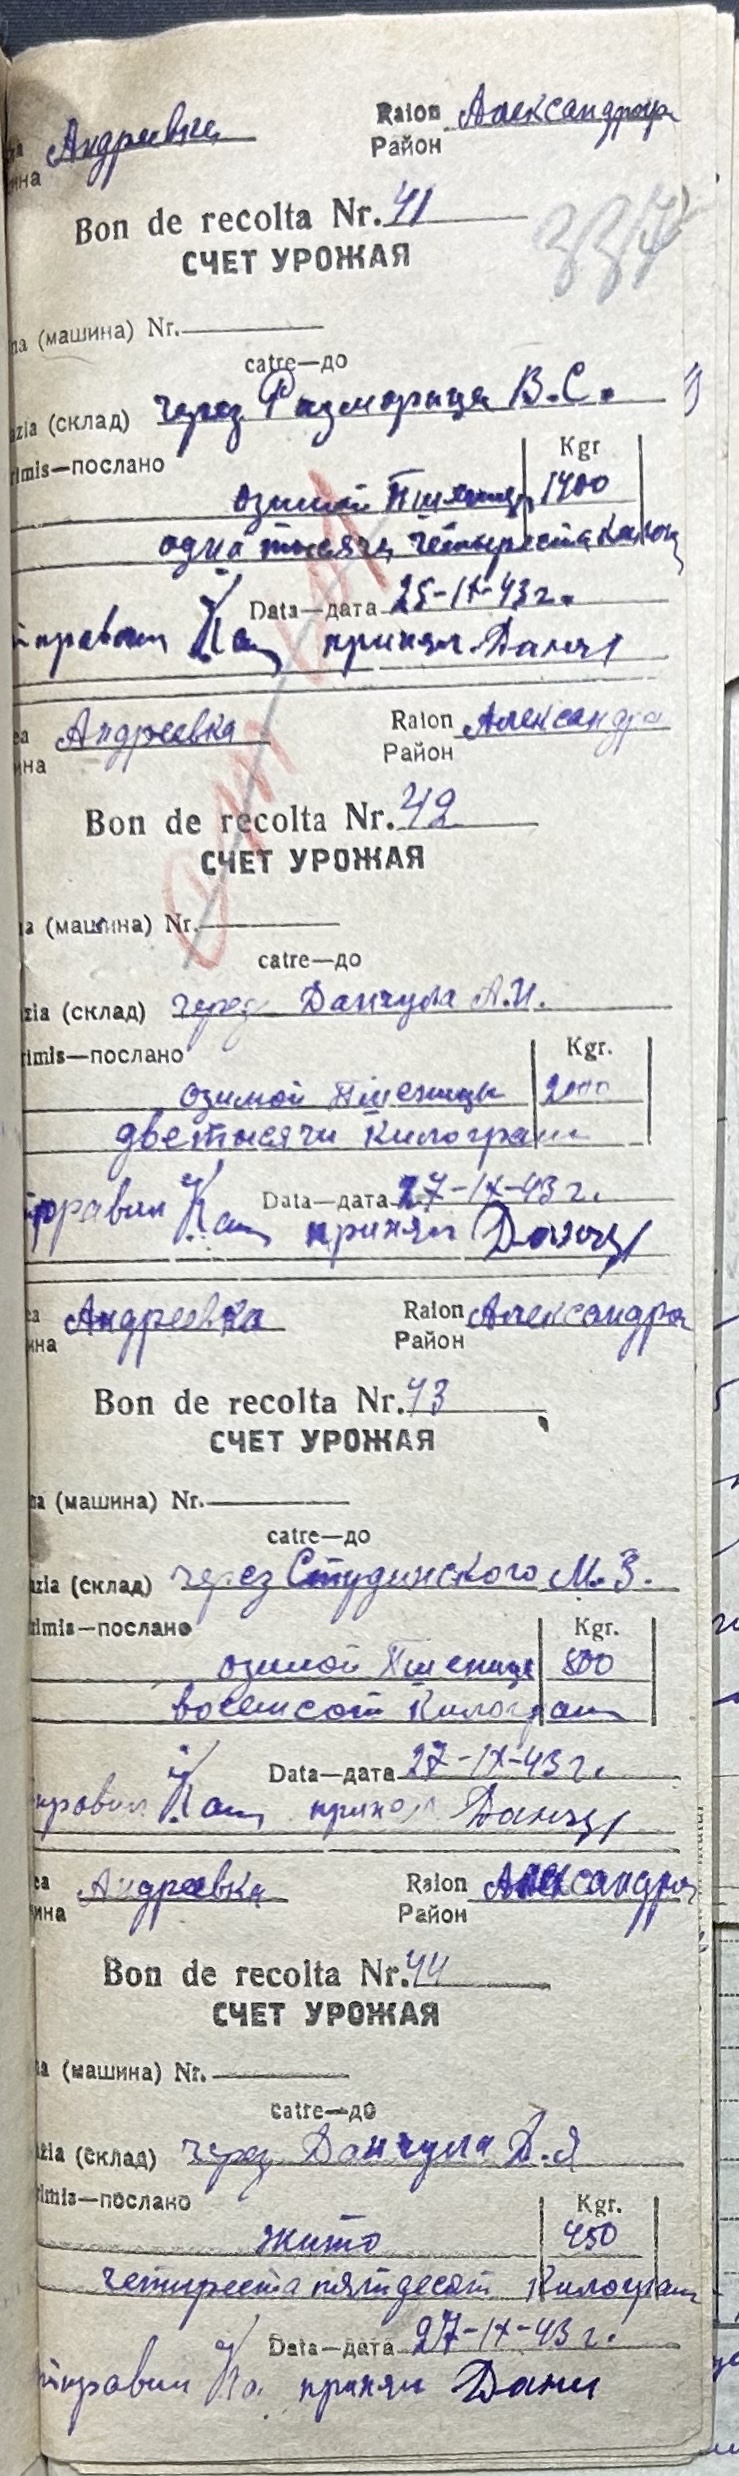 Андреевка Raion Александро
ина Район
Bon de recolta Nr. 41
СЧЕТ УРОЖАЯ
337
na (машина) Nr.
catre—до
azia (склад) через В. С.
rimis—послано Kgr
озимой Пшеницы 1400
одна тысяча четыреста
Data—дата 25-IX-43 г.
принял
ea Андреевка Raion Александро
ина Район
Bon de recolta Nr. 42
СЧЕТ УРОЖАЯ
na (машина) Nr.
catre—до
zia (склад) через Данчула А. И.
rimis—послано Kgr.
озимой Пшеницы 2000
дветысячи Килограм
Data—дата 27-IX-43 г.
правил принял
ea Андреевка Raion Александро
ина Район
Bon de recolta Nr. 43
СЧЕТ УРОЖАЯ
na (машина) Nr.
catre—до
azia (склад) через Студинского М. З.
rimis—послано Kgr.
озимой Пшеницы 800
восемсот Килограм
Data—дата 27-IX-43 г.
правил принял
ea Андреевка Raion Александро
ина Район
Bon de recolta Nr. 44
СЧЕТ УРОЖАЯ
na (машина) Nr.
catre—до
azia (склад) через Данчула Д. Я
rimis—послано Kgr.
жито 450
четиреста пятдесят Килограм
Data—дата 27-IX-43 г.
правил принял